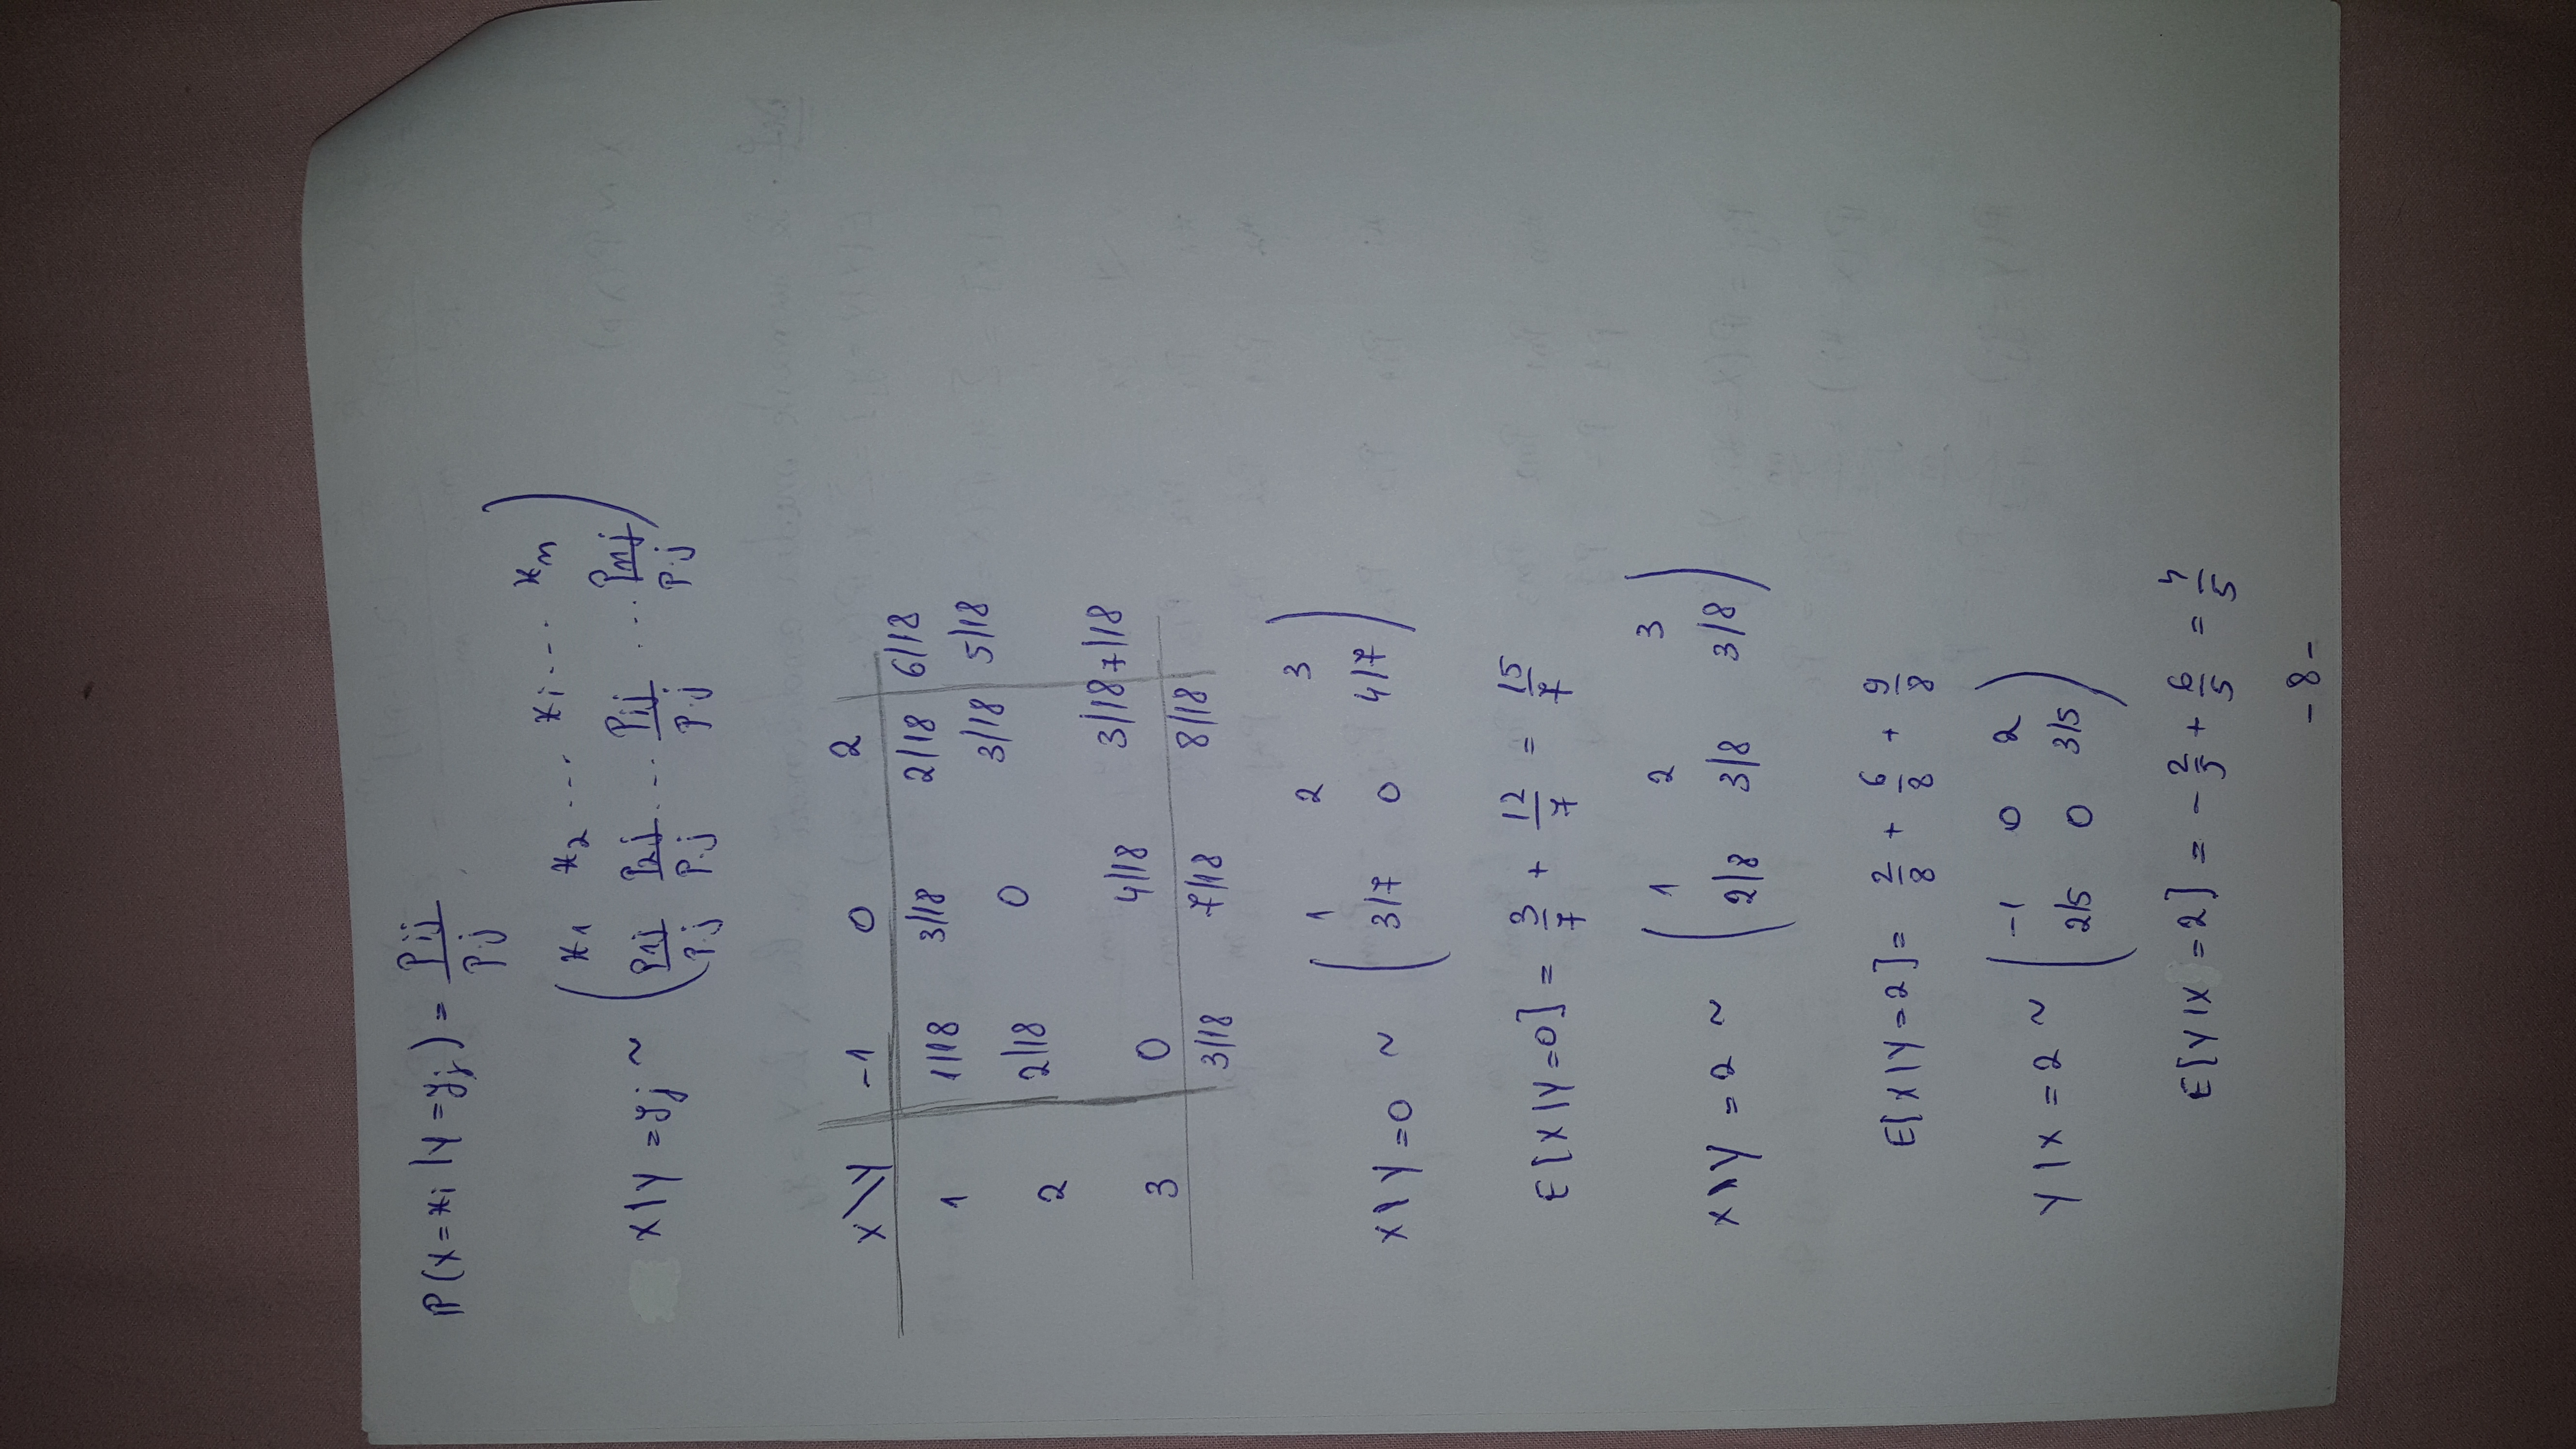 P(X=xi|Y=yj) = pij/p.j
x1 x2 ... xi ... xn
X|Y=yj ~ ( p1j/p.j p2j/p.j ... pij/p.j ... pnj/p.j )
X\Y -1 0 2
1 1/18 3/18 2/18 6/18
2 2/18 0 3/18 5/18
3 0 4/18 3/18 7/18
3/18 7/18 8/18
1 2 3
X|Y=0 ~ ( 3/7 0 4/7 )
E[X|Y=0] = 3/7 + 12/7 = 15/7
1 2 3
X|Y=2 ~ ( 2/8 3/8 3/8 )
E[X|Y=2] = 2/8 + 6/8 + 9/8
-1 0 2
Y|X=2 ~ ( 2/5 0 3/5 )
E[Y|X=2] = -2/5 + 6/5 = 4/5
-8-